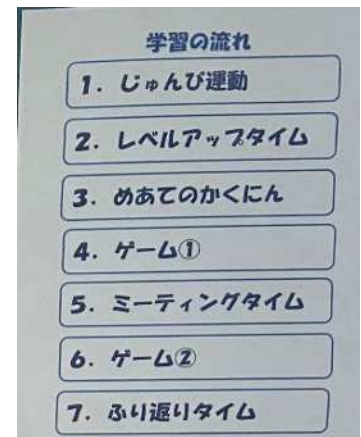 学習の流れ
1. じゅんび運動
2. レベルアップタイム
3. めあてのかくにん
4. ゲーム①
5. ミーティングタイム
6. ゲーム②
7. ふり返りタイム